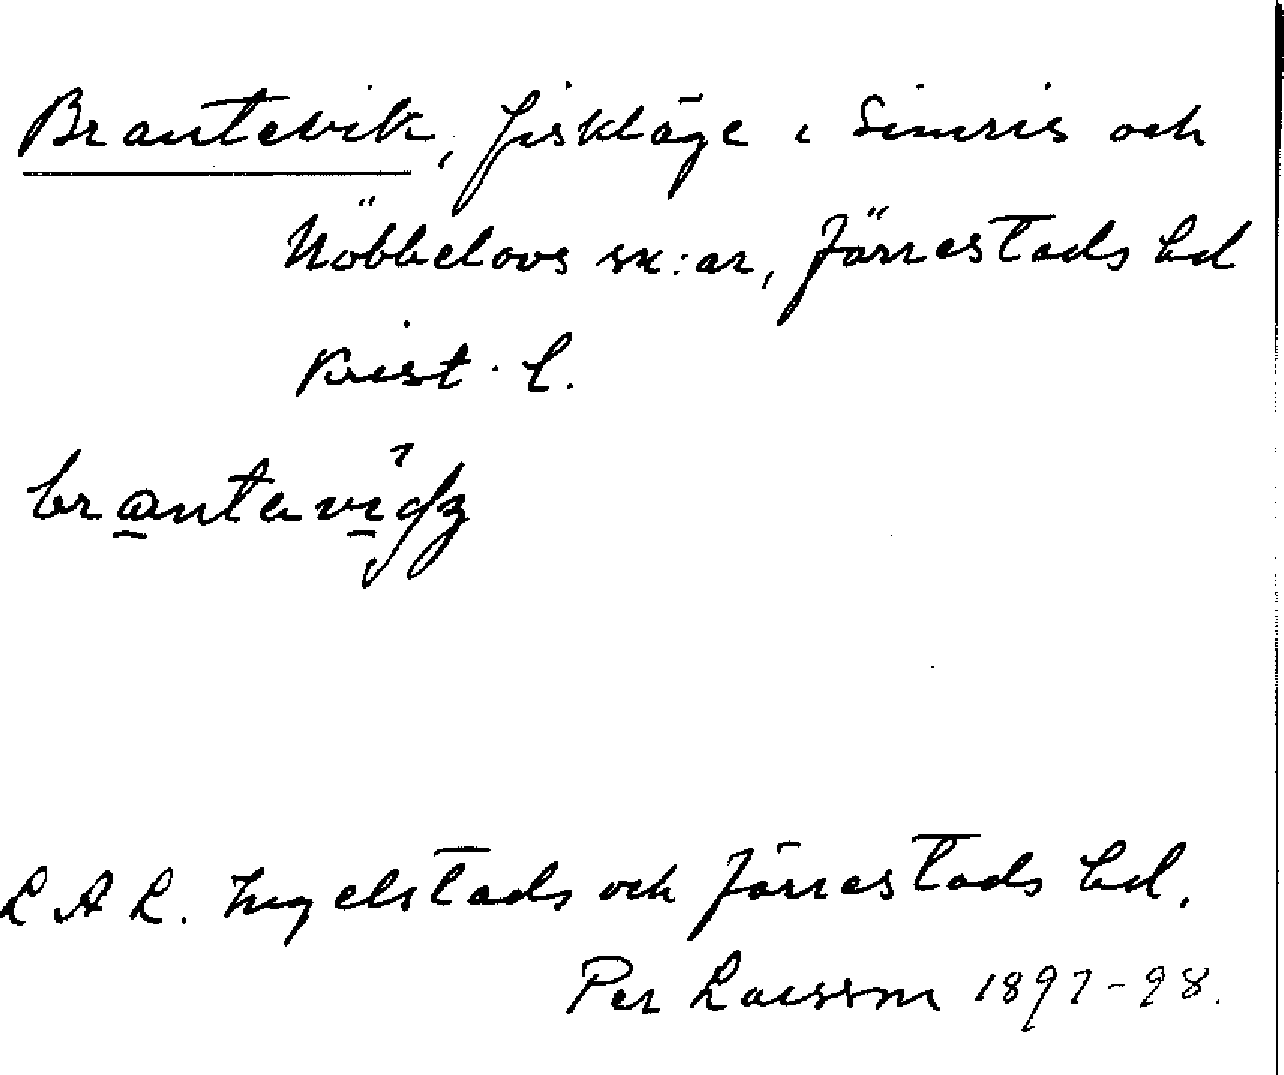 Brantevik, fiskläge i Simris och
Nöbbelövs sk:ar, Järrestads hd
Krist. l.
brantavi
L A L. Ingelstads och Järrestads hd.
Per Larsson 1897-98.